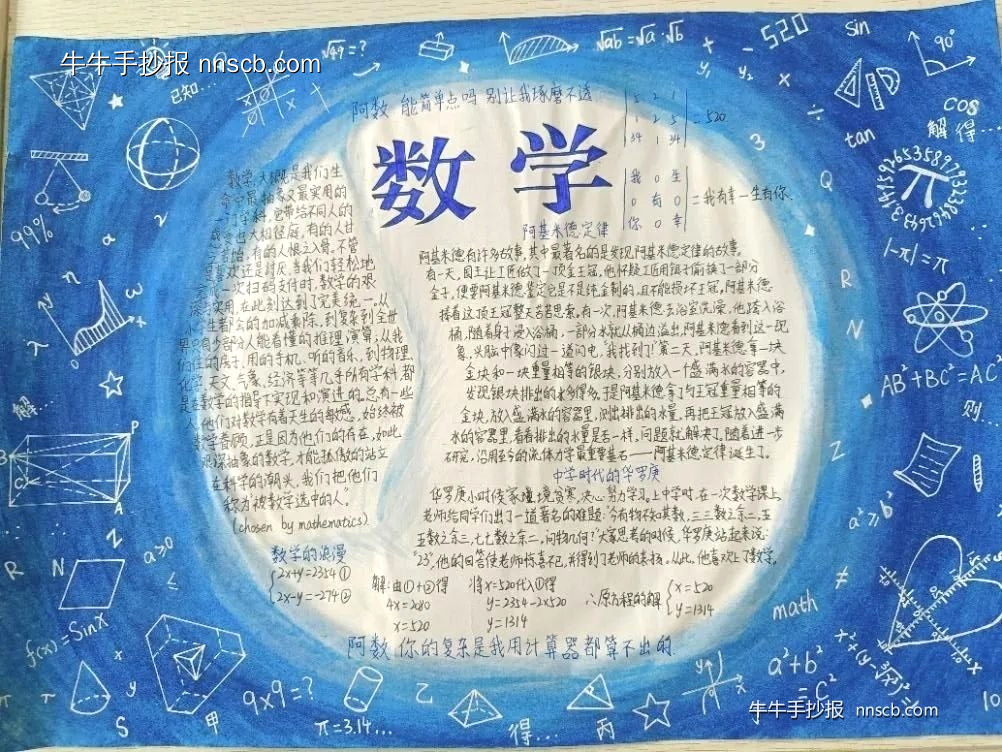 牛牛手抄报 nnscb.com
√49=?
√ab=√a·√b
520
sin
90°
已知…
y₁
y₂
cos
解 得…
tan
π
阿数 能简单点吗 别让我琢磨不透
数学
5 2 1
1 2 5
34 1 34
=520
我 0 生
0 有 0
你 0 幸
=我有幸一生有你
3
Q
|-π|=π
R
N
Z
AB²+BC²=AC
则…
99%
2
a
解…
数学,大概是我们生
命中最抽象又最实用的
一门学科,它带给不同人的
感受也大相径庭,有的人甘
之若饴,有的人恨之入骨,不管
是喜欢还是讨厌,当我们轻松地
一次扫码支付时,数学的艰
深与实用,在此刻达到了完美统一,从
小学生都会的加减乘除,到复杂到全世
界只有少部分人能看懂的推理演算,从我
们住的房子,用的手机,听的音乐,到物理,
化学,天文,气象,经济等等几乎所有学科,都
是在数学的指导下实现和演进的,总有一些
人,他们对数学有着天生的敏感,始终被
数学眷顾,正是因为他们的存在,如此
艰深抽象的数学,才能孤傲的站立
在科学的潮头,我们把他们
称为"被数学选中的人".
(chosen by mathematics)
阿基米德定律
阿基米德有许多故事,其中最著名的是发现阿基米德定律的故事.
有一天,国王让工匠做了一顶金王冠,他怀疑工匠用银子偷换了一部分
金子,便要阿基米德鉴定它是不是纯金制的,且不能损坏王冠,阿基米德
捧着这顶王冠整天苦苦思索,有一次,阿基米德去浴室洗澡,他跨入浴
桶,随着身子浸入浴桶,一部分水就从桶边溢出,阿基米德看到这一现
象,头脑中像闪过一道闪电,"我找到了!"第二天,阿基米德拿一块
金块和一块重量相等的银块,分别放入一个盛满水的容器中,
发现银块排出的水多得多,于是阿基米德拿了与王冠重量相等的
金块,放入盛满水的容器里,测出排出的水量,再把王冠放入盛满
水的容器里,看看排出的水量是否一样,问题就解决了,随着进一步
研究,沿用至今的流体力学最重要基石——阿基米德定律诞生了.
中学时代的华罗庚
华罗庚小时候家境贫寒,决心努力学习,上中学时,在一次数学课上,
老师给同学们出了一道著名的难题:"今有物不知其数,三三数之余二,五
五数之余三,七七数之余二,问物几何?"大家思考的时候,华罗庚站起来说:
"23",他的回答使老师惊喜不已,并得到了老师的表扬,从此,他喜欢上了数学.
数学的浪漫
2x+y=2354①
2x-y=-274②
解:由①+②得
4x=2080
x=520
将x=520代入①得
y=2354-2×520
y=1314
∴原方程的解
x=520
y=1314
阿数 你的复杂是我用计算器都算不出的
B
P
C
A
N
R
N
Z
a≥0
≤
a²≥0
≠
math
f(x)=Sinx
x
y
S
甲
9×9=?
π=3.14…
乙
得…
丙
a²+b²
=C²
x²+(y-³√x²)²=1
牛牛手抄报 nnscb.com